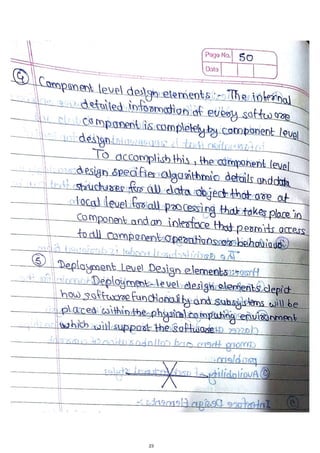 Page No. 50
Date
④ Component level design elements :- The internal
detailed information of every software
component is completely by component level
design
To accomplish this, the component level
design specifies algorithmic details and data
structures for all data object that are at
local level for all processing that takes place in
component and an interface that permits access
to all component operations or behaviour
⑤ Deployment Level Design elements
Deployment-level design elements depict
how software functionality and subsystems will be
placed within the physical computing environment
which will support the software
23